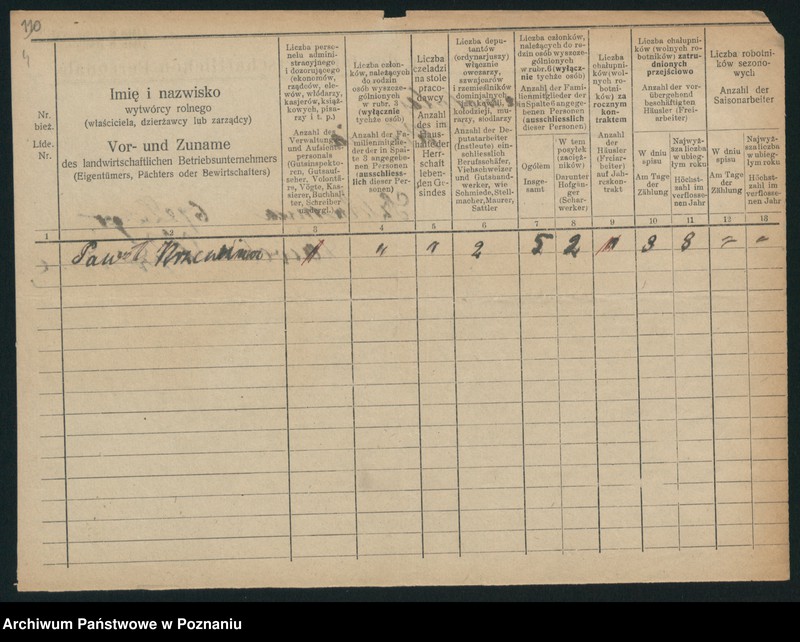 110
Nr. bież.
Lfde. Nr.
Imię i nazwisko
wytwórcy rolnego
(właściciela, dzierżawcy lub zarządcy)
Vor- und Zuname
des landwirtschaftlichen Betriebsunternehmers
(Eigentümers, Pächters oder Bewirtschafters)
Liczba perso-
nelu admini-
stracyjnego
i dozorującego
(ekonomów,
rządców, ele-
wów, włodarzy,
kasjerów, książ-
kowych, pisa-
rzy i t. p.)
Anzahl des
Verwaltungs-
und Aufsichts-
personals
(Gutsinspekto-
ren, Gutsauf-
seher, Volontä-
re, Vögte, Kas-
sierer, Buchhal-
ter, Schreiber
und ergl.)
Liczba człon-
ków, należących
do rodzin
osób wyszcze-
gólnionych
w rubr. 3
(wyłącznie
tychże osób)
Anzahl der Fa-
milienmitglie-
der der in Spal-
te 3 angegebe-
nen Personen
(ausschliess-
lich dieser Per-
sonen)
Liczba
czeladzi
na stole
praco-
dawcy
Anzahl
des im
Haus-
halte der
Herr-
schaft
leben-
den Ge-
sindes
Liczba depu-
tantów
(ordynarjuszy)
włącznie
owczarzy,
szwajcarów
i rzemieślników
dominjalnych,
kołodzieji, mu-
rarzy, siodlarzy
Anzahl der De-
putatarbeiter
(Instleute) ein-
schliesslich
Berufsschäfer,
Viehschweizer
und Gutshand-
werker, wie
Schmiede, Stell-
macher, Maurer,
Sattler
Liczba członków,
należących do ro-
dzin osób wyszcze-
gólnionych
w rubr. 6 (wyłącz-
nie tychże osób)
Anzahl der Fami-
lienmitglieder der
in Spalte 6 angege-
benen Personen
(ausschliesslich
dieser Personen)
Ogółem
Insge-
samt
W tem
posyłek
(zaciąż-
ników)
Darunter
Hofgän-
ger
(Schar-
werker)
Liczba
chałupni-
ków (wol-
nych ro-
botni-
ków) za
rocznym
kon-
traktem
Anzahl
der
Häusler
(Freiar-
beiter)
auf Jah-
reskon-
trakt
Liczba chałupni-
ków (wolnych ro-
botników) zatru-
dnionych
przejściowo
Anzahl der vor-
übergehend
beschäftigten
Häusler (Frei-
arbeiter)
W dniu
spisu
Am Tage
der
Zählung
Najwyż-
sza liczba
w ubieg-
łym roku
Höchst-
zahl im
verflosse-
nen Jahr
Liczba robotni-
ków sezono-
wych
Anzahl der
Saisonarbeiter
W dniu
spisu
Am Tage
der
Zählung
Najwyż-
sza liczba
w ubieg-
łym roku
Höchst-
zahl im
verflosse-
nen Jahr
1 3 4 5 6 7 8 9 10 11 12 13
" " 2 5 2 3 3
Archiwum Państwowe w Poznaniu